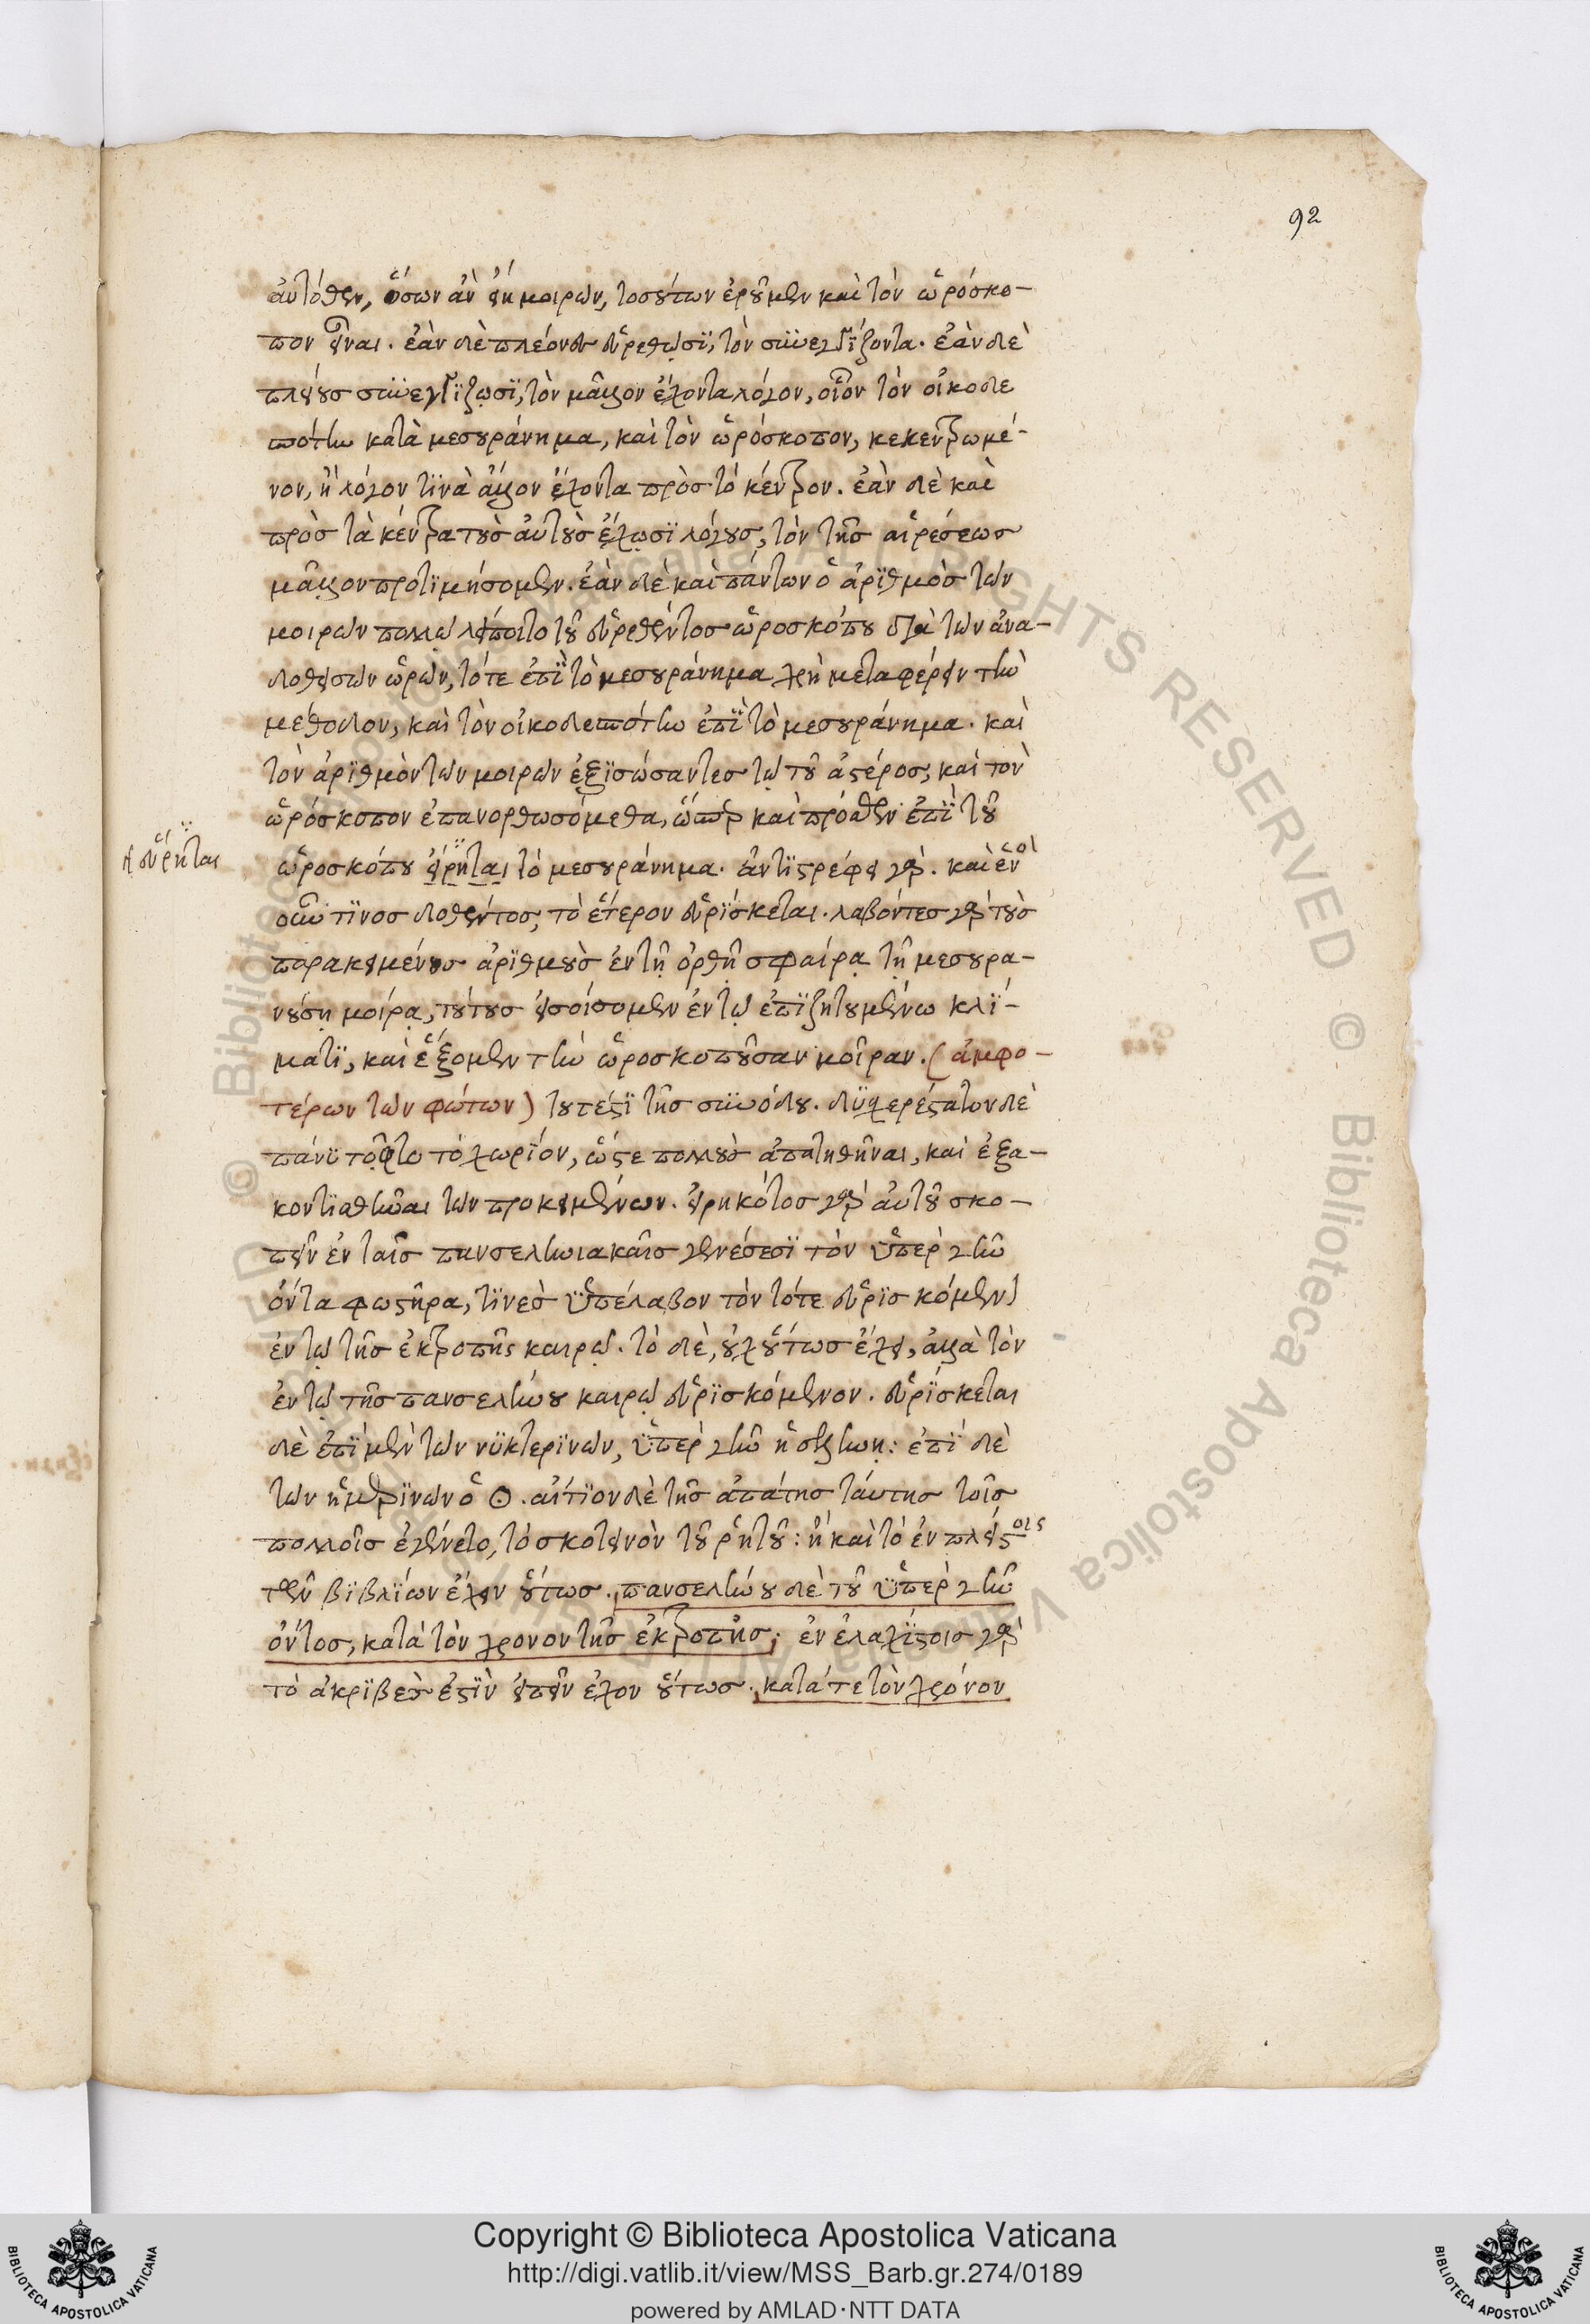 92
αὐτόθεν, ὅσων ἂν εἴη μοιρῶν, τοσούτων ἐροῦμεν καὶ τὸν ὡρόσκο-
πον εἶναι. ἐὰν δὲ πλέονες εὑρεθῶσι, τὸν συνεγγίζοντα. ἐὰν δὲ
πλείους συνεγγίζωσι, τὸν μᾶλλον ἔχοντα λόγον, οἷον τὸν οἰκοδε
πότην κατὰ μεσουράνημα, καὶ τὸν ὡρόσκοπον, κεκεντρωμέ-
νον, ἢ λόγον τινὰ ἄλλον ἔχοντα πρὸς τὸ κέντρον. ἐὰν δὲ καὶ
πρὸς τὰ κέντρα τοὺς αὐτοὺς ἔχωσι λόγους, τὸν τῆς αἱρέσεως
μᾶλλον προτιμήσομεν. ἐὰν δὲ καὶ πάντων ὁ ἀριθμὸς τῶν
μοιρῶν πολλῷ λείποιτο τοῦ εὑρεθέντος ὡροσκόπου διὰ τῶν ἀνα-
δοθεισῶν ὡρῶν, τότε ἐπὶ τὸ μεσουράνημα χρὴ μεταφέρειν τὴν
μέθοδον, καὶ τὸν οἰκοδεπότην ἐπὶ τὸ μεσουράνημα. καὶ
τὸν ἀριθμὸν τῶν μοιρῶν ἐξισώσαντες τῷ τοῦ ἀστέρος, καὶ τὸν
ὡρόσκοπον ἐπανορθωσόμεθα, ὥσπερ καὶ πρόσθεν ἐπὶ τοῦ
ἢ εὕρηται
ὡροσκόπου εἴρηται τὸ μεσουράνημα. ἀντιστρέφει γάρ. καὶ ἑνὸς
οἱουν τινος δοθέντος, τὸ ἕτερον εὑρίσκεται. λαβόντες γὰρ τοὺς
παρακειμένους ἀριθμοὺς ἐν τῇ ὀρθῇ σφαίρᾳ τῇ μεσουρα-
νούσῃ μοίρᾳ, τούτους εἰσοίσομεν ἐν τῷ ἐπιζητουμένω κλί-
ματι, καὶ ἕξομεν τὴν ὡροσκοποῦσαν μοῖραν. (ἀμφο-
τέρων τῶν φώτων) τουτέστι τῆς συνόδου. δυσχερέστατον δὲ
πάνυ τοῦτο τὸ χωρίον, ὥστε πολλοὺς ἀπατηθῆναι, καὶ ἐξα-
κοντισθῆναι τῶν προκειμένων. εἰρηκότος γὰρ αὐτοῦ σκο-
πεῖν ἐν ταῖς πανσεληνιακαῖς γενέσεσι τὸν ὑπὲρ γῆν
ὄντα φωστῆρα, τινες ὑπέλαβον τὸν τότε εὑρισκόμενον
ἐν τῷ τῆς ἐκτροπῆς καιρῷ. τὸ δὲ, οὐχ οὕτως ἔχει, ἀλλὰ τὸν
ἐν τῷ τῆς πανσελήνου καιρῷ εὑρισκόμενον. εὑρίσκεται
δὲ ἐπὶ μὲν τῶν νυκτερινῶν, ὑπὲρ γῆν ἡ σελήνη: ἐπὶ δὲ
τῶν ἡμερινῶν ὁ ☉. αἴτιον δὲ τῆς ἀπάτης ταύτης τοῖς
πολλοῖς ἐγένετο, τὸ σκοτεινὸν τοῦ ῥητοῦ: ἢ καὶ τὸ ἐν πλείστοις
τῶν βιβλίων ἔχειν οὕτως. πανσελήνου δὲ τοῦ ὑπὲρ γῆν
ὄντος, κατὰ τὸν χρονον τῆς ἐκτροπῆς; ἐν ἐλαχίστοις γὰρ
τὸ ἀκριβὲς ἐστὶν εἰπεῖν ἔχον οὕτως. κατά τε τὸν χρόνον
Copyright © Biblioteca Apostolica Vaticana
http://digi.vatlib.it/view/MSS_Barb.gr.274/0189
powered by AMLAD·NTT DATA